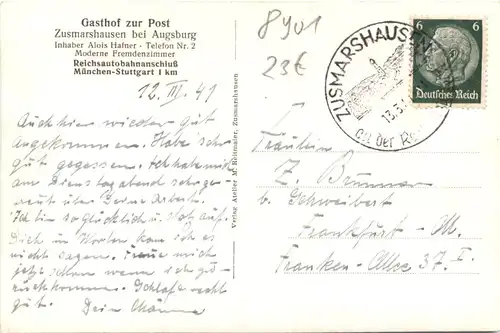 Gasthof zur Post
Zusmarshausen bei Augsburg
Inhaber Alois Hafner - Telefon Nr. 2
Moderne Fremdenzimmer
Reichsautobahnanschluß
München-Stuttgart 1 km
12. III. 41
Auch hier wieder gut
angekommen. Habe sehr
gut gegessen. Ich habe mich
am Dienstag abend sehr ge-
freut über Deine Arbeit.
Ich bin so glücklich u. stolz auf
Dich in Worten kann ich es
nicht sagen. Freue mich
jetzt schon wenn ich zu-
rückkomme. Schlafe recht
gut. Dein
Verlag Atelier M. Reitmaier, Zusmarshausen
8401
23€
ZUSMARSHAUSEN
13.3.
an der
6 6
Deutsches Reich
Fräulein
Z. Brummer
b. Schweibert
Frankfurt - M.
Franken-Allee 37 I.